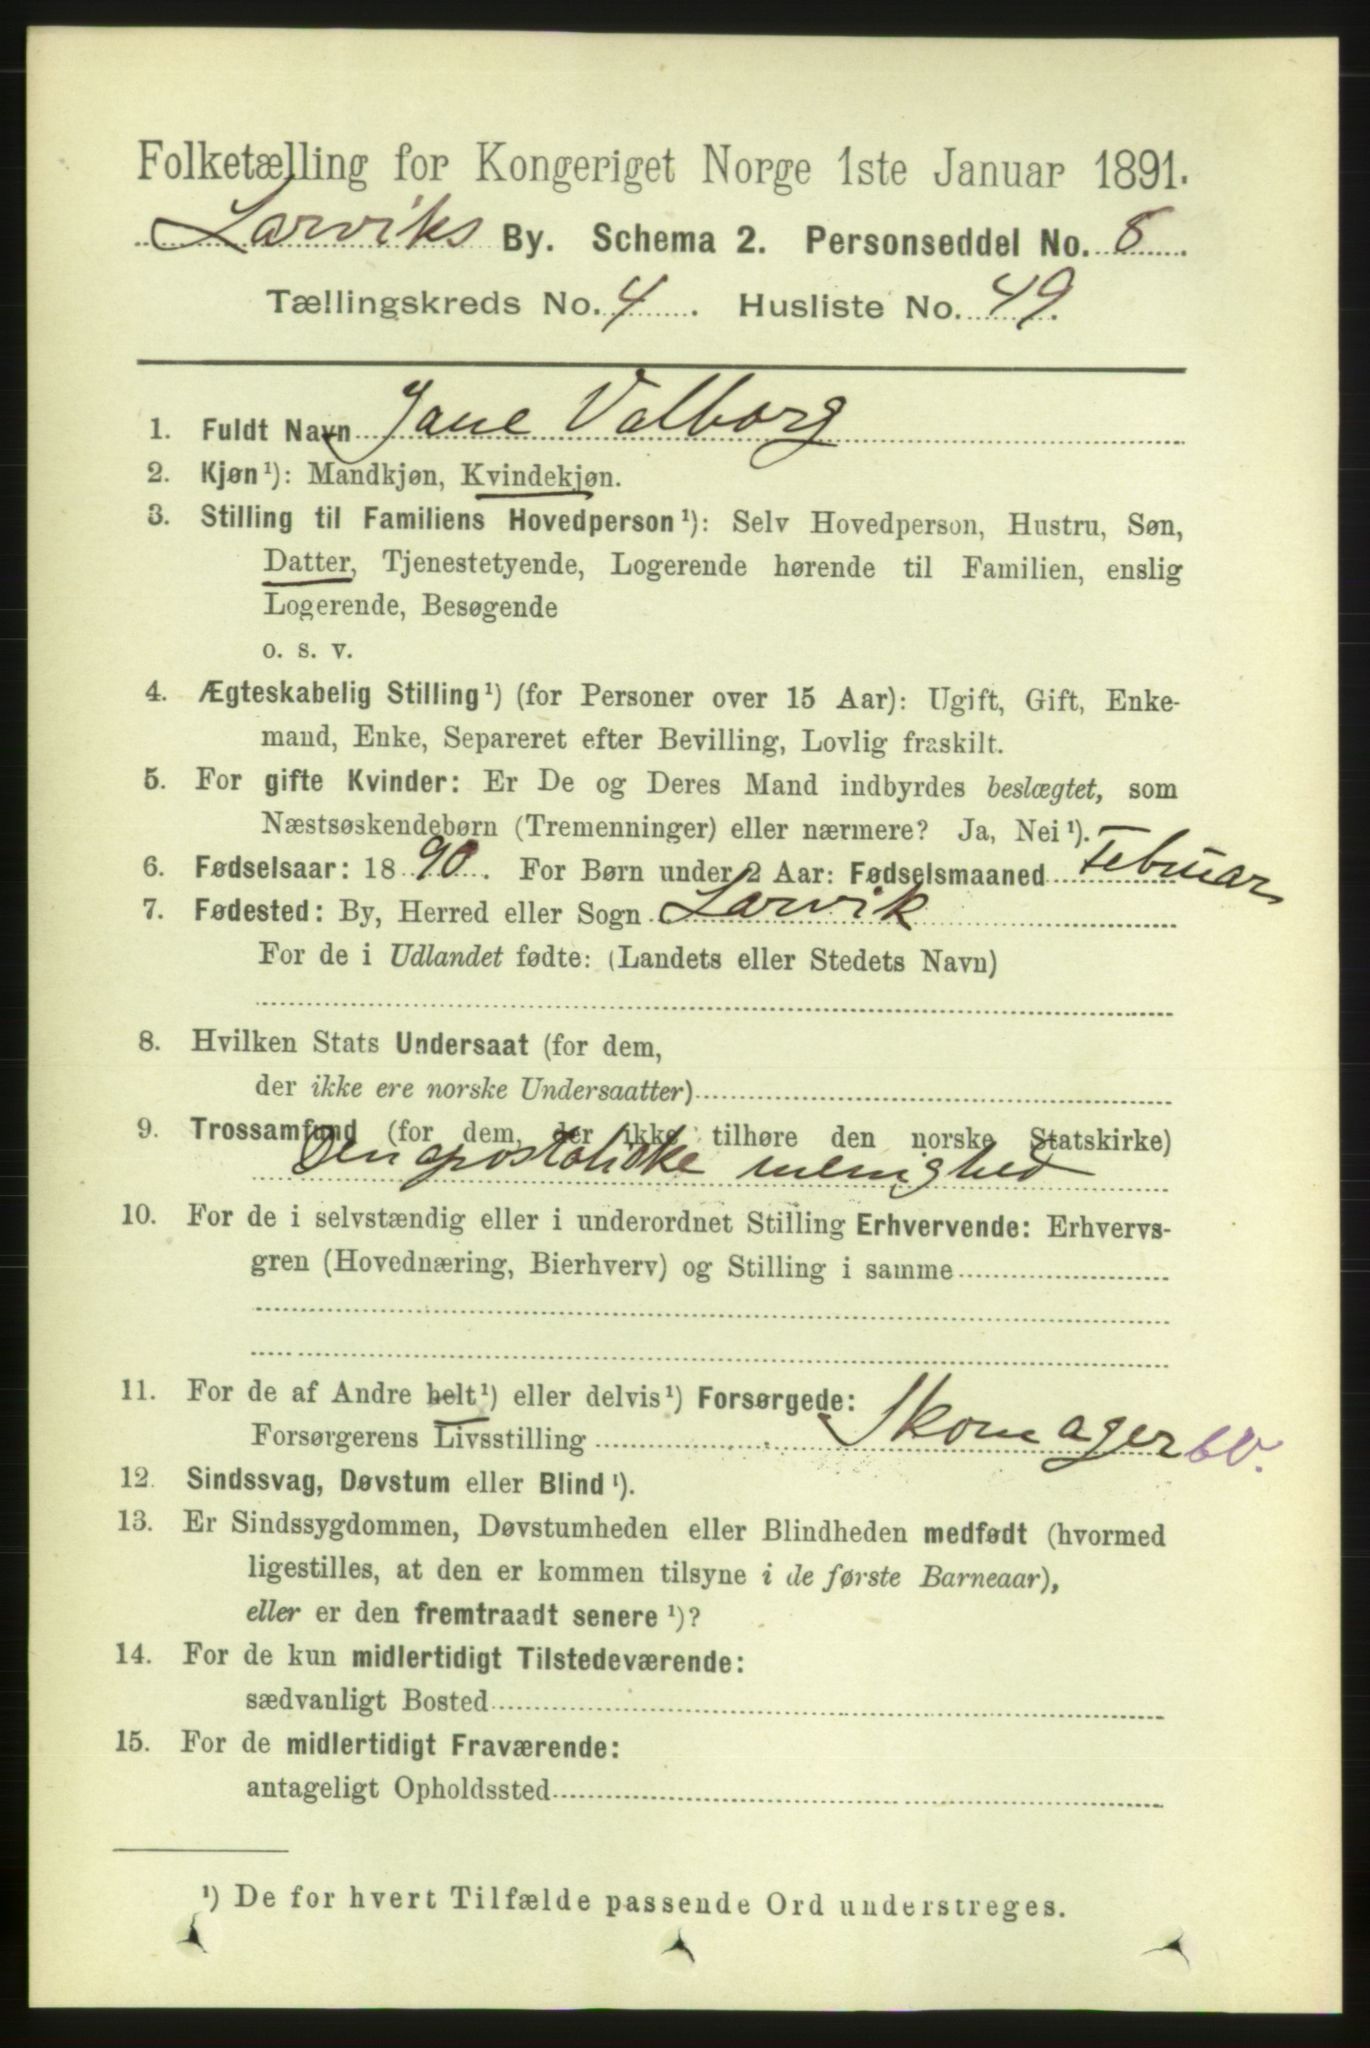 Folketælling for Kongeriget Norge 1ste Januar 1891.
Larviks By. Schema 2. Personseddel No. 8.
Tællingskreds No. 4. Husliste No. 49.
1. Fuldt Navn Jane Valborg
2. Kjøn¹): Mandkjøn, Kvindekjøn.
3. Stilling til Familiens Hovedperson¹): Selv Hovedperson, Hustru, Søn,
Datter, Tjenestetyende, Logerende hørende til Familien, enslig
Logerende, Besøgende
o. s. v.
4. Ægteskabelig Stilling¹) (for Personer over 15 Aar): Ugift, Gift, Enke-
mand, Enke, Separeret efter Bevilling, Lovlig fraskilt.
5. For gifte Kvinder: Er De og Deres Mand indbyrdes beslægtet, som
Næstsøskendebørn (Tremenninger) eller nærmere? Ja, Nei¹).
6. Fødselsaar: 1890. For Børn under 2 Aar: Fødselsmaaned Februar
7. Fødested: By, Herred eller Sogn Larvik
For de i Udlandet fødte: (Landets eller Stedets Navn)
8. Hvilken Stats Undersaat (for dem,
der ikke ere norske Undersaatter)
9. Trossamfund (for dem, der ikke tilhøre den norske Statskirke)
Den apostoliske menighed
10. For de i selvstændig eller i underordnet Stilling Erhvervende: Erhvervs-
gren (Hovednæring, Bierhverv) og Stilling i samme
11. For de af Andre helt¹) eller delvis¹) Forsørgede:
Forsørgerens Livsstilling Skomager
12. Sindssvag, Døvstum eller Blind¹).
13. Er Sindssygdommen, Døvstumheden eller Blindheden medfødt (hvormed
ligestilles, at den er kommen tilsyne i de første Barneaar),
eller er den fremtraadt senere¹)?
14. For de kun midlertidigt Tilstedeværende:
sædvanligt Bosted
15. For de midlertidigt Fraværende:
antageligt Opholdssted
¹) De for hvert Tilfælde passende Ord understreges.